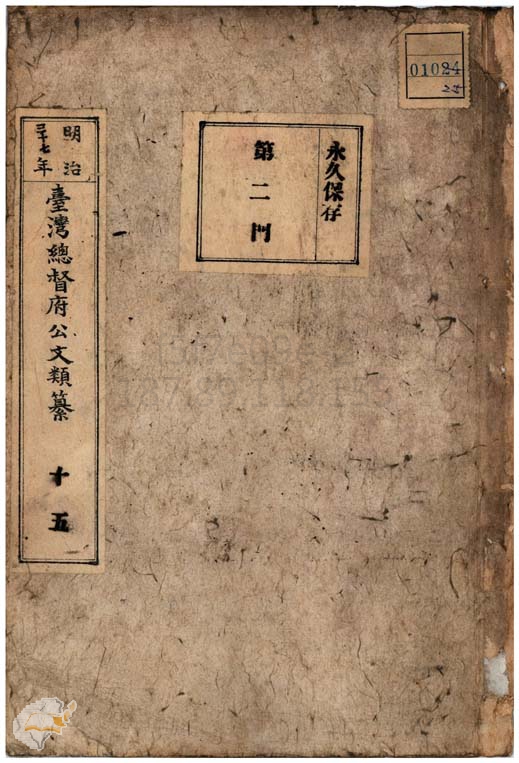 01024
25
永久保存
第二門
明治
三十七年
臺灣總督府公文類纂
十五